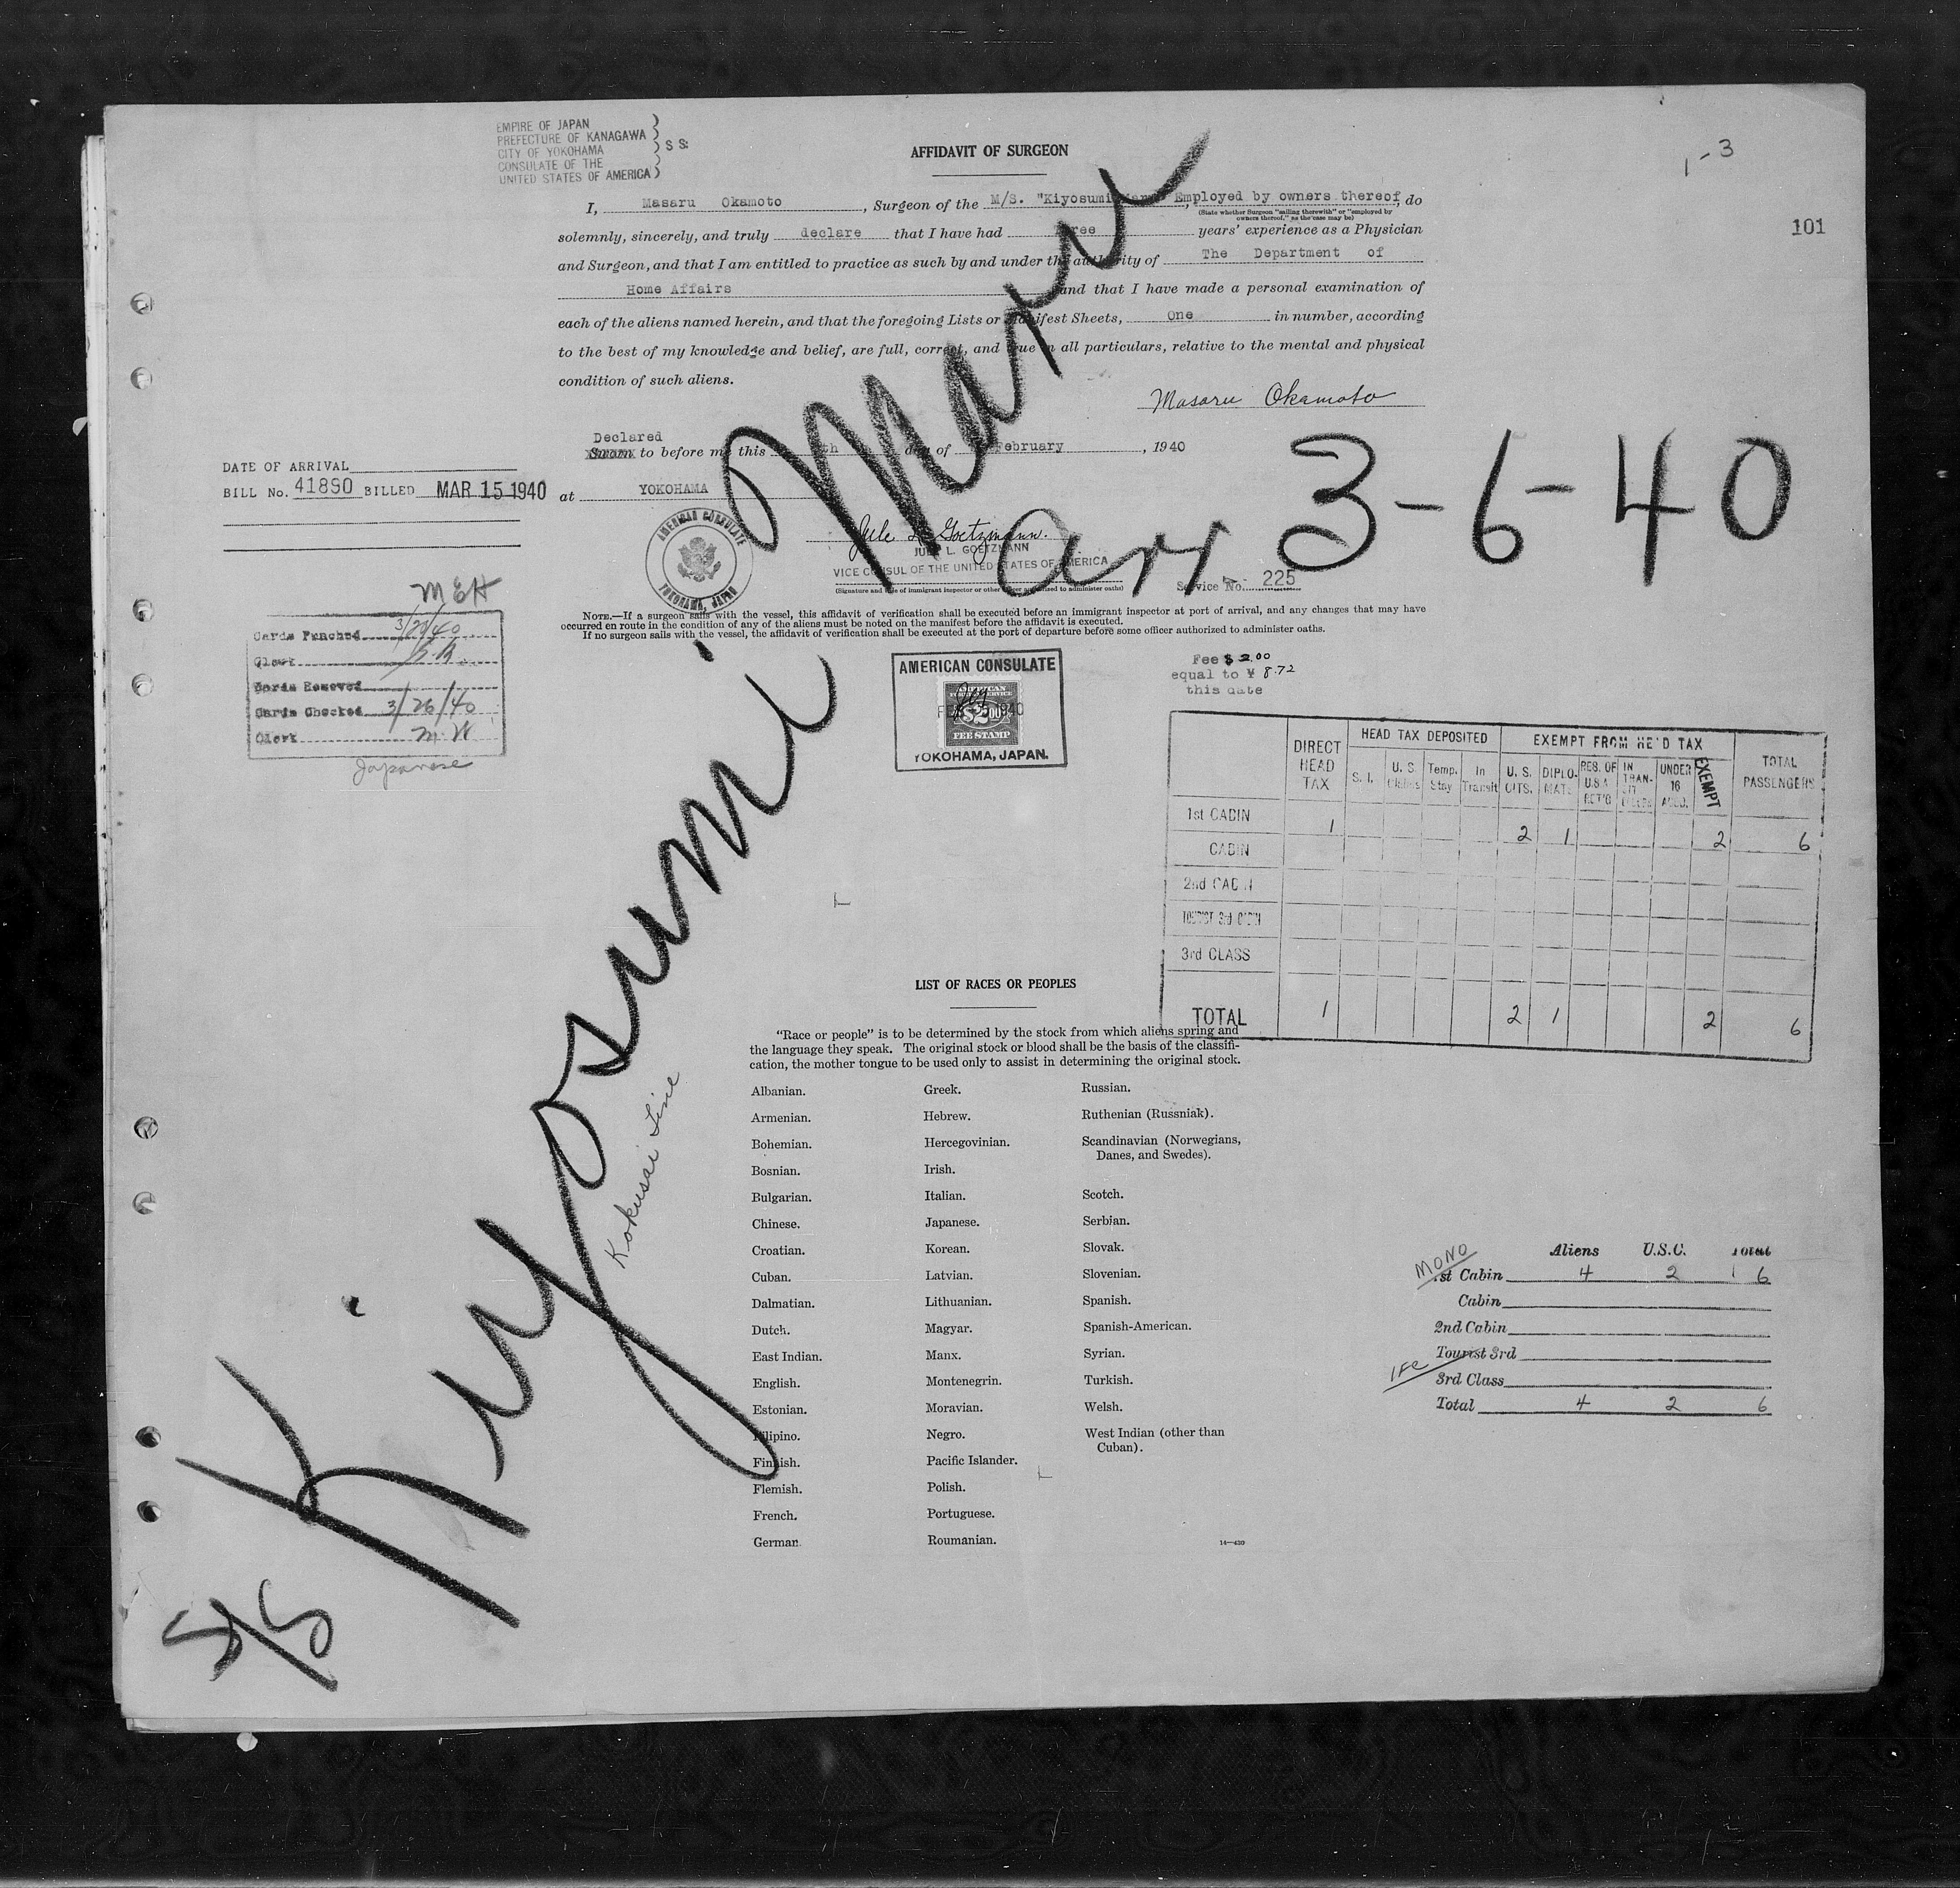 EMPIRE OF JAPAN
PREFECTURE OF KANAGAWA
CITY OF YOKOHAMA
CONSULATE OF THE
UNITED STATES OF AMERICA
} S S:
AFFIDAVIT OF SURGEON
1-3
101
I, Masaru Okamoto, Surgeon of the M/S. "Kiyosumi Employed by owners thereof, do
(State whether Surgeon "sailing therewith" or "employed by
owners thereof," as the case may be)
solemnly, sincerely, and truly declare that I have had years' experience as a Physician
and Surgeon, and that I am entitled to practice as such by and under the authority of The Department of
Home Affairs and that I have made a personal examination of
each of the aliens named herein, and that the foregoing Lists or Manifest Sheets, One in number, according
to the best of my knowledge and belief, are full, correct, and true in all particulars, relative to the mental and physical
condition of such aliens.
Masaru Okamoto
Declared
Sworn to before me this th day of February, 1940
at YOKOHAMA
DATE OF ARRIVAL
BILL No. 41890 BILLED MAR 15 1940
Arr 3-6-40
AMERICAN CONSULATE
YOKOHAMA, JAPAN
Jule L. Goetzmann.
JULE L. GOETZMANN
VICE CONSUL OF THE UNITED STATES OF AMERICA
(Signature and title of immigrant inspector or other officer authorized to administer oaths)
Service No. 225
NOTE.—If a surgeon sails with the vessel, this affidavit of verification shall be executed before an immigrant inspector at port of arrival, and any changes that may have
occurred en route in the condition of any of the aliens must be noted on the manifest before the affidavit is executed.
If no surgeon sails with the vessel, the affidavit of verification shall be executed at the port of departure before some officer authorized to administer oaths.
MEH
Cards Punched
Clerk
Cards Removed
Cards Checked 3/26/40
Clerk M W
Japanese
AMERICAN CONSULATE
AMERICAN
FOREIGN SERVICE
$2.00
FEE STAMP
YOKOHAMA, JAPAN.
Fee $ 2.00
equal to ¥ 8.72
this date
DIRECT HEAD TAX
HEAD TAX DEPOSITED
EXEMPT FROM HEAD TAX
TOTAL PASSENGERS
S. I.
U. S. Citzns
Temp. Stay
In Transit
U. S. CITS.
DIPLO-MATS
RES. OF U.S.A. RET'G
IN TRAN-SIT
UNDER 16 ACCD.
EXEMPT
1st CABIN 1 2 1 2 6
CABIN
2nd CABIN
TOURIST 3rd CABIN
3rd CLASS
TOTAL 1 2 1 2 6
S/S Kiyosumi Maru
Kokusai Line
LIST OF RACES OR PEOPLES
"Race or people" is to be determined by the stock from which aliens spring and
the language they speak. The original stock or blood shall be the basis of the classifi-
cation, the mother tongue to be used only to assist in determining the original stock.
Albanian.
Armenian.
Bohemian.
Bosnian.
Bulgarian.
Chinese.
Croatian.
Cuban.
Dalmatian.
Dutch.
East Indian.
English.
Estonian.
Filipino.
Finnish.
Flemish.
French.
German.
Greek.
Hebrew.
Hercegovinian.
Irish.
Italian.
Japanese.
Korean.
Latvian.
Lithuanian.
Magyar.
Manx.
Montenegrin.
Moravian.
Negro.
Pacific Islander.
Polish.
Portuguese.
Roumanian.
Russian.
Ruthenian (Russniak).
Scandinavian (Norwegians,
Danes, and Swedes).
Scotch.
Serbian.
Slovak.
Slovenian.
Spanish.
Spanish-American.
Syrian.
Turkish.
Welsh.
West Indian (other than
Cuban).
14—430
Aliens U.S.C. Total
MONO
1st Cabin 4 2 6
Cabin
2nd Cabin
Tourist 3rd
3rd Class
Total 4 2 6